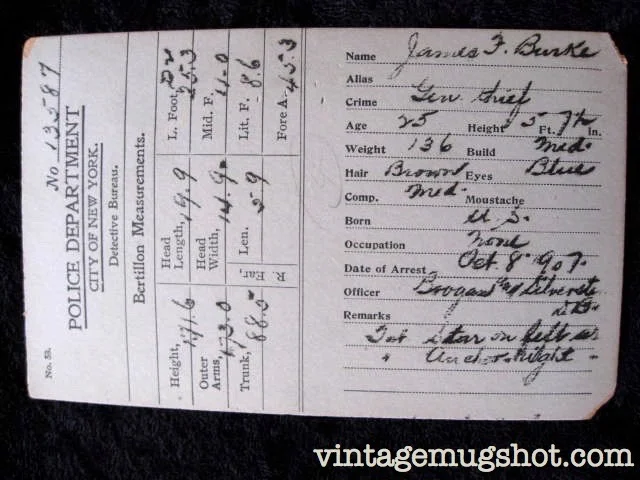 No 13587
POLICE DEPARTMENT
CITY OF NEW YORK.
Detective Bureau.
Bertillon Measurements.
Height, 171.6
Head Length, 19.9
L. Foot, 25.3
Outer Arms, 173.0
Head Width, 14.9
Mid. F. 11.0
Trunk, 88.5
R. Ear, Len. 5 9
Lit. F. 8.6
Fore A. 45.3
No. 53.
Name James F. Burke
Alias
Crime Gen. thief
Age 25 Height 5 Ft. 7½ In.
Weight 136 Build Med.
Hair Brown Eyes Blue
Comp. Med. Moustache
Born U. S.
Occupation None
Date of Arrest Oct. 8" 907.
Officer
Remarks
Tat Star on left
" Anchor Right "
vintagemugshot.com